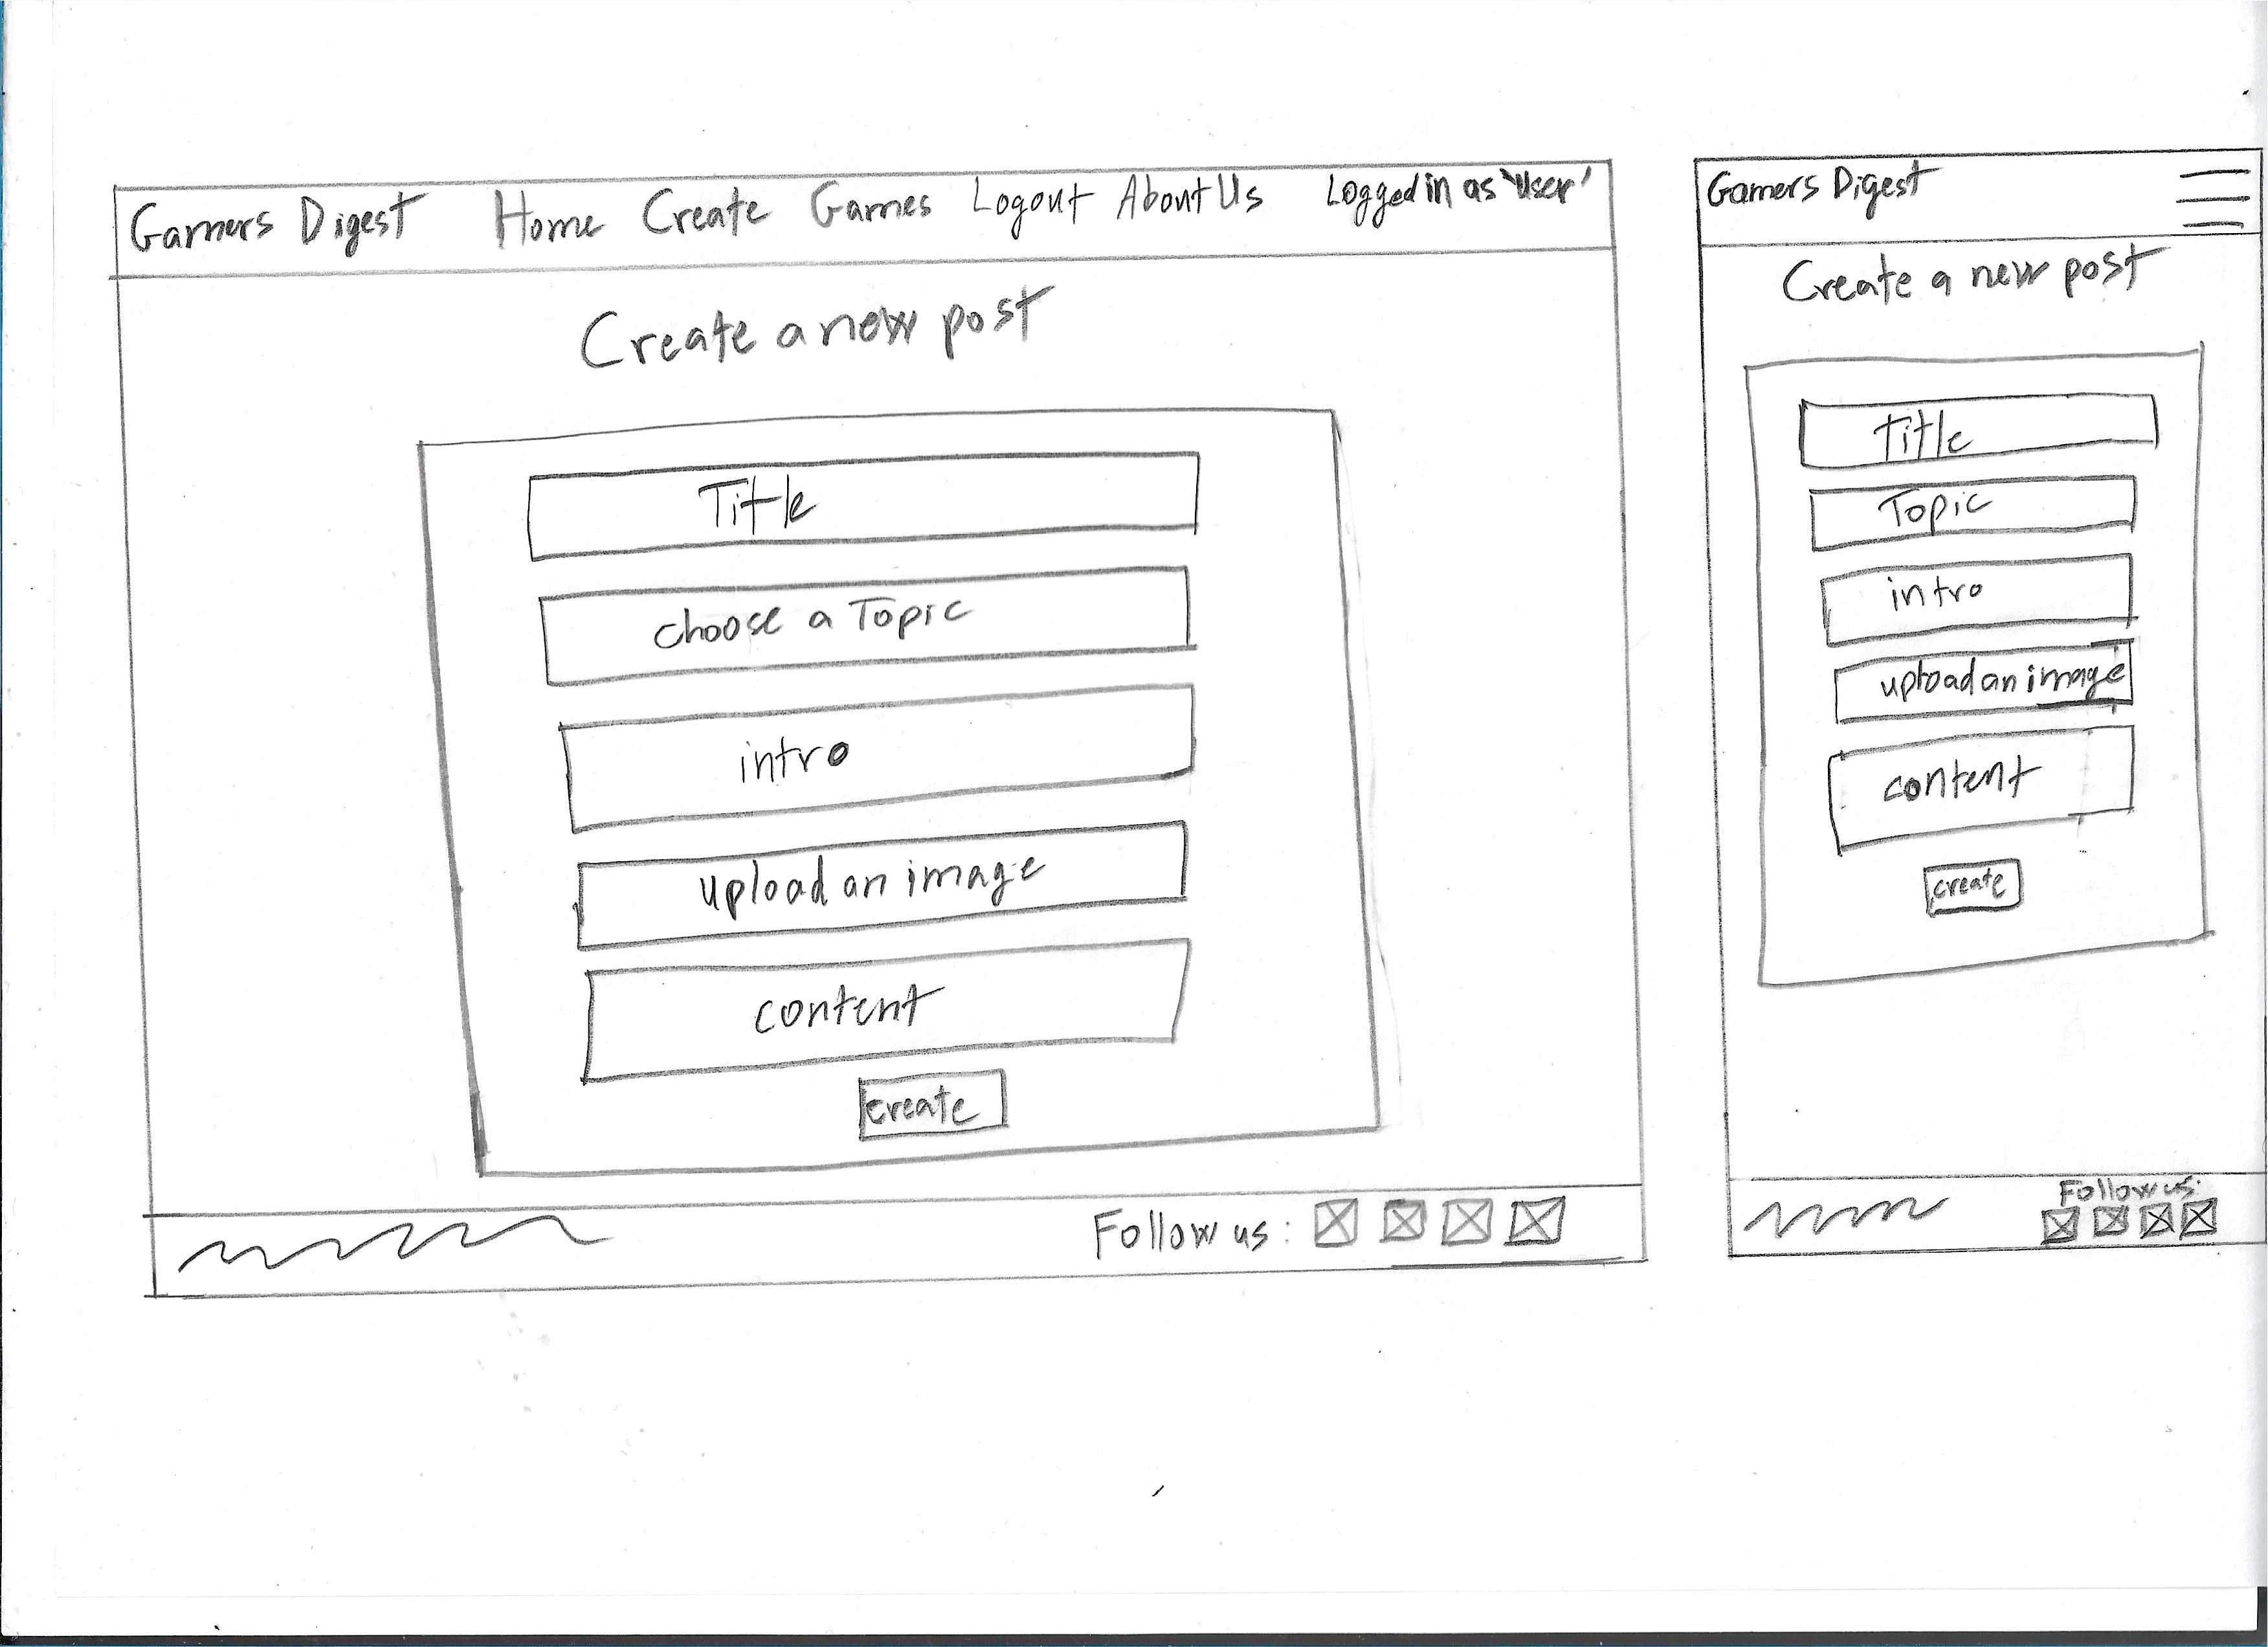 Gamers Digest Home Create Games Logout About Us Logged in as 'User'
Create a new post
Title
choose a Topic
intro
upload an image
content
create
Follow us:
Gamers Digest
Create a new post
Title
Topic
intro
upload an image
content
create
Follow us: